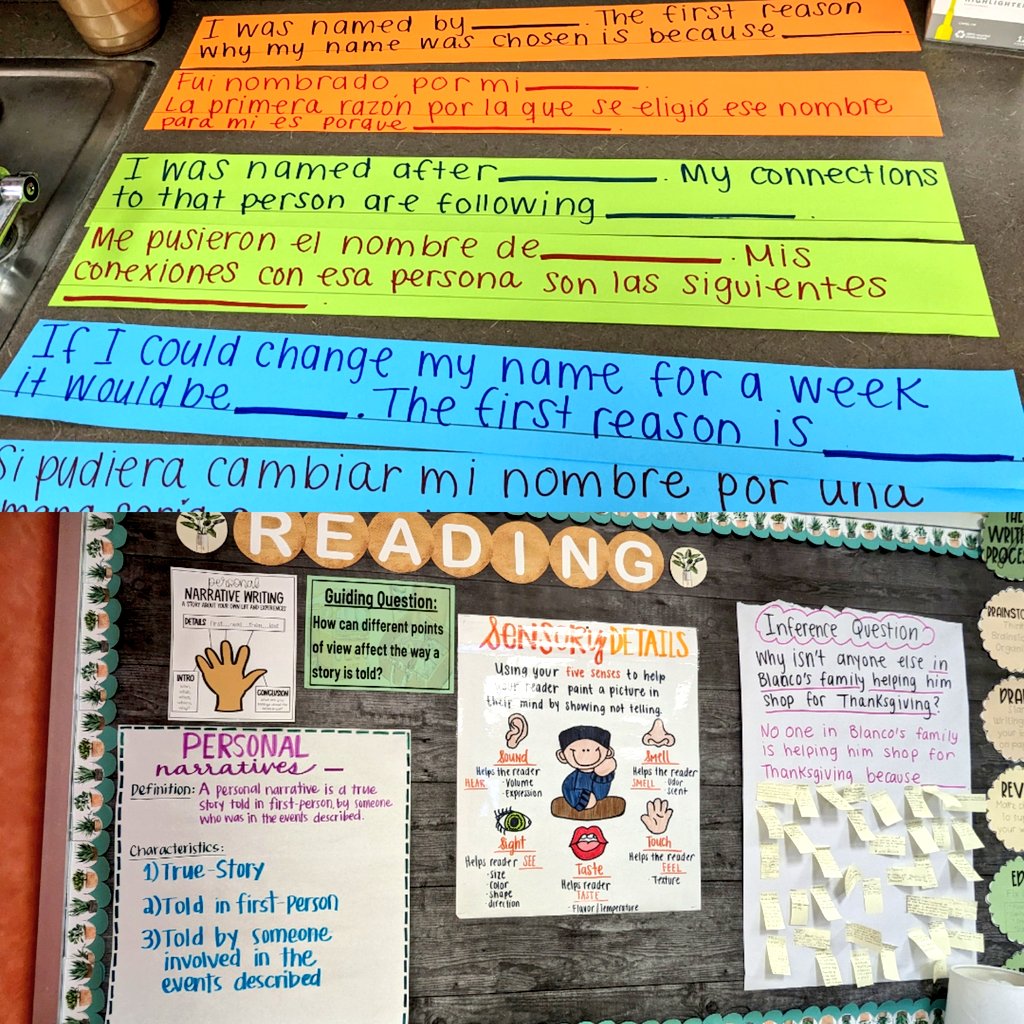 I was named by ________. The first reason
why my name was chosen is because ________.
Fui nombrado por mi ________.
La primera razón por la que se eligió ese nombre
para mi es porque ________.
I was named after ________. My connections
to that person are following ________.
Me pusieron el nombre de ________. Mis
conexiones con esa persona son las siguientes
________.
If I could change my name for a week
it would be ________. The first reason is ________
Si pudiera cambiar mi nombre por una
READING
personal
NARRATIVE WRITING
A STORY ABOUT YOUR OWN LIFE AND EXPERIENCES
DETAILS
INTRO
CONCLUSION
Guiding Question:
How can different points
of view affect the way a
story is told?
PERSONAL
narratives
Definition: A personal narrative is a true
story told in first-person, by someone
who was in the events described.
Characteristics:
1) True-Story
2) Told in first-person
3) Told by someone
involved in the
events described
SENSORY DETAILS
Using your five senses to help
your reader paint a picture in
their mind by showing not telling.
Sound
Helps the reader
HEAR
• Volume
• Expression
Smell
Helps the reader
SMELL
• Odor
• scent
Sight
Helps reader SEE
• Size
• color
• shape
• direction
Taste
Helps reader
TASTE
• Flavor/Temperature
Touch
Helps the reader
FEEL
• Texture
Inference Question
Why isn't anyone else in
Blanco's family helping him
shop for Thanksgiving?
No one in Blanco's family
is helping him shop for
Thanksgiving because
THE
WRIT
PROCE
BRAINSTO
DRA
REV
ED